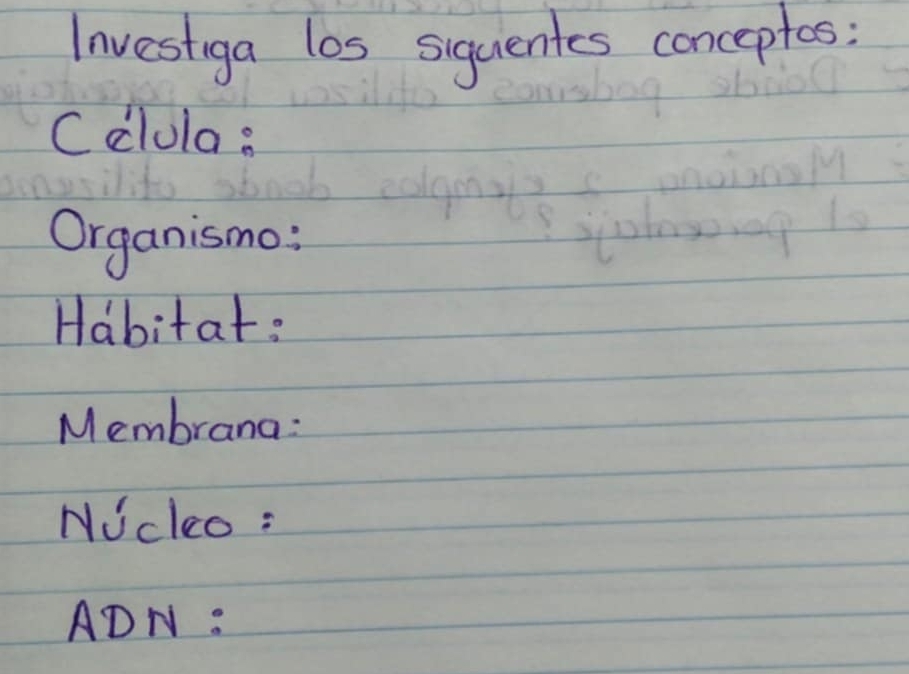 Investiga los siguientes conceptos:
Célula:
Organismo:
Hábitat:
Membrana:
Núcleo:
ADN: